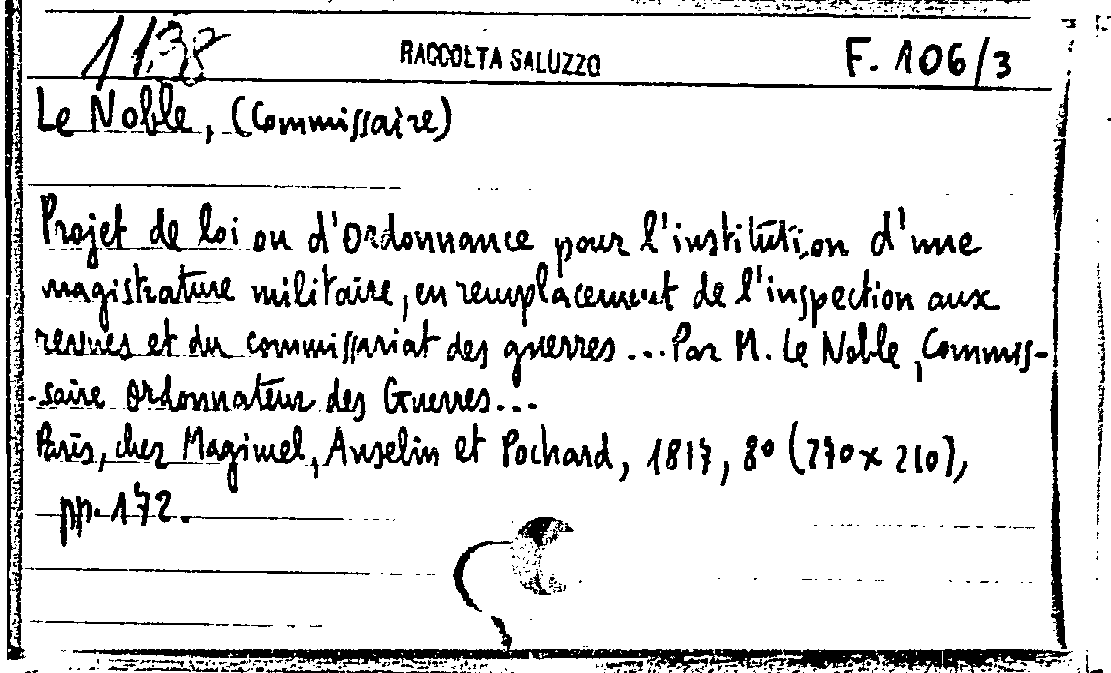 1138 RACCOLTA SALUZZO F. 106/3
Le Noble, (Commissaire)
Projet de loi ou d'Ordonnance pour l'institution d'une
magistrature militaire, en remplacement de l'inspection aux
revues et du commissariat des guerres... Par M. Le Noble, Commis-
-saire Ordonnateur des Guerres...
Paris, chez Magimel, Anselin et Pochard, 1817, 8° (270x210),
pp. 172.